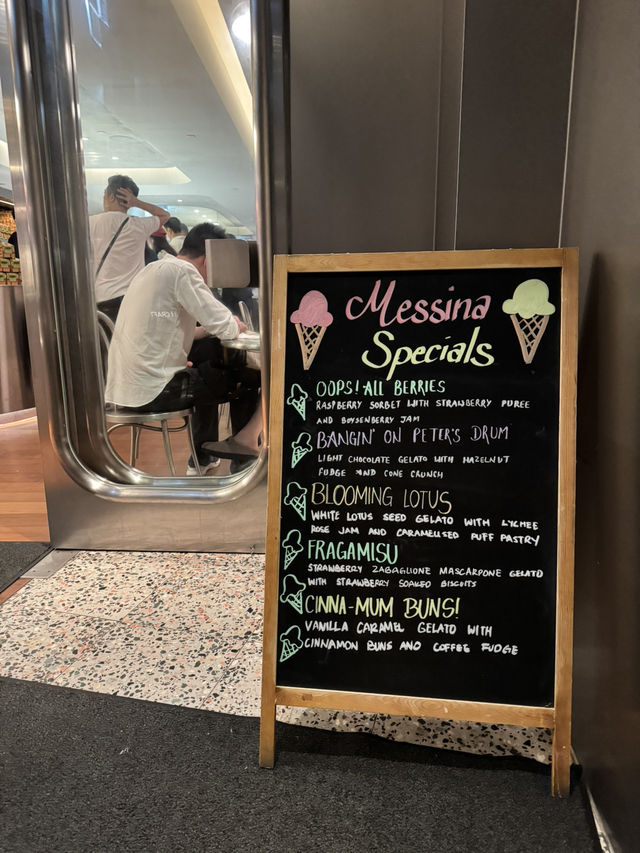 Messina
Specials
OOPS! ALL BERRIES
RASPBERRY SORBET WITH STRAWBERRY PUREE
AND BOYSENBERRY JAM
BANGIN' ON PETER'S DRUM
LIGHT CHOCOLATE GELATO WITH HAZELNUT
FUDGE AND CONE CRUNCH
BLOOMING LOTUS
WHITE LOTUS SEED GELATO WITH LYCHEE
ROSE JAM AND CARAMELISED PUFF PASTRY
FRAGAMISU
STRAWBERRY ZABAGLIONE MASCARPONE GELATO
WITH STRAWBERRY SOAKED BISCUITS
CINNA-MUM BUNS!
VANILLA CARAMEL GELATO WITH
CINNAMON BUNS AND COFFEE FUDGE